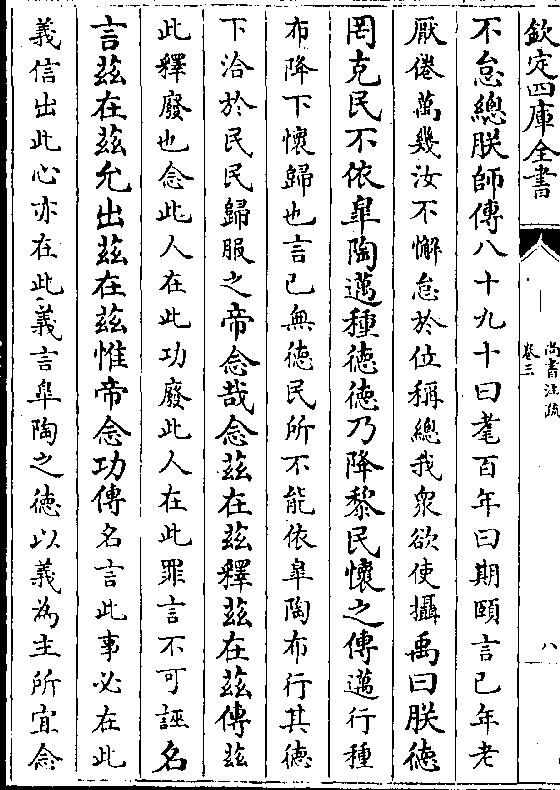 欽定四庫全書
尚書注疏
卷三
八
不怠總朕師傳八十九十曰耄百年曰期頤言已年老
厭倦萬幾汝不懈怠於位稱總我衆欲使攝禹曰朕德
罔克民不依臯陶邁種德德乃降黎民懷之傳邁行種
布降下懷歸也言已無德民所不能依臯陶布行其德
下洽於民民歸服之帝念哉念茲在茲釋茲在茲傳茲
此釋廢也念此人在此功廢此人在此罪言不可誣名
言茲在茲允出茲在茲惟帝念功傳名言此事必在此
義信出此心亦在此義言臯陶之德以義為主所宜念